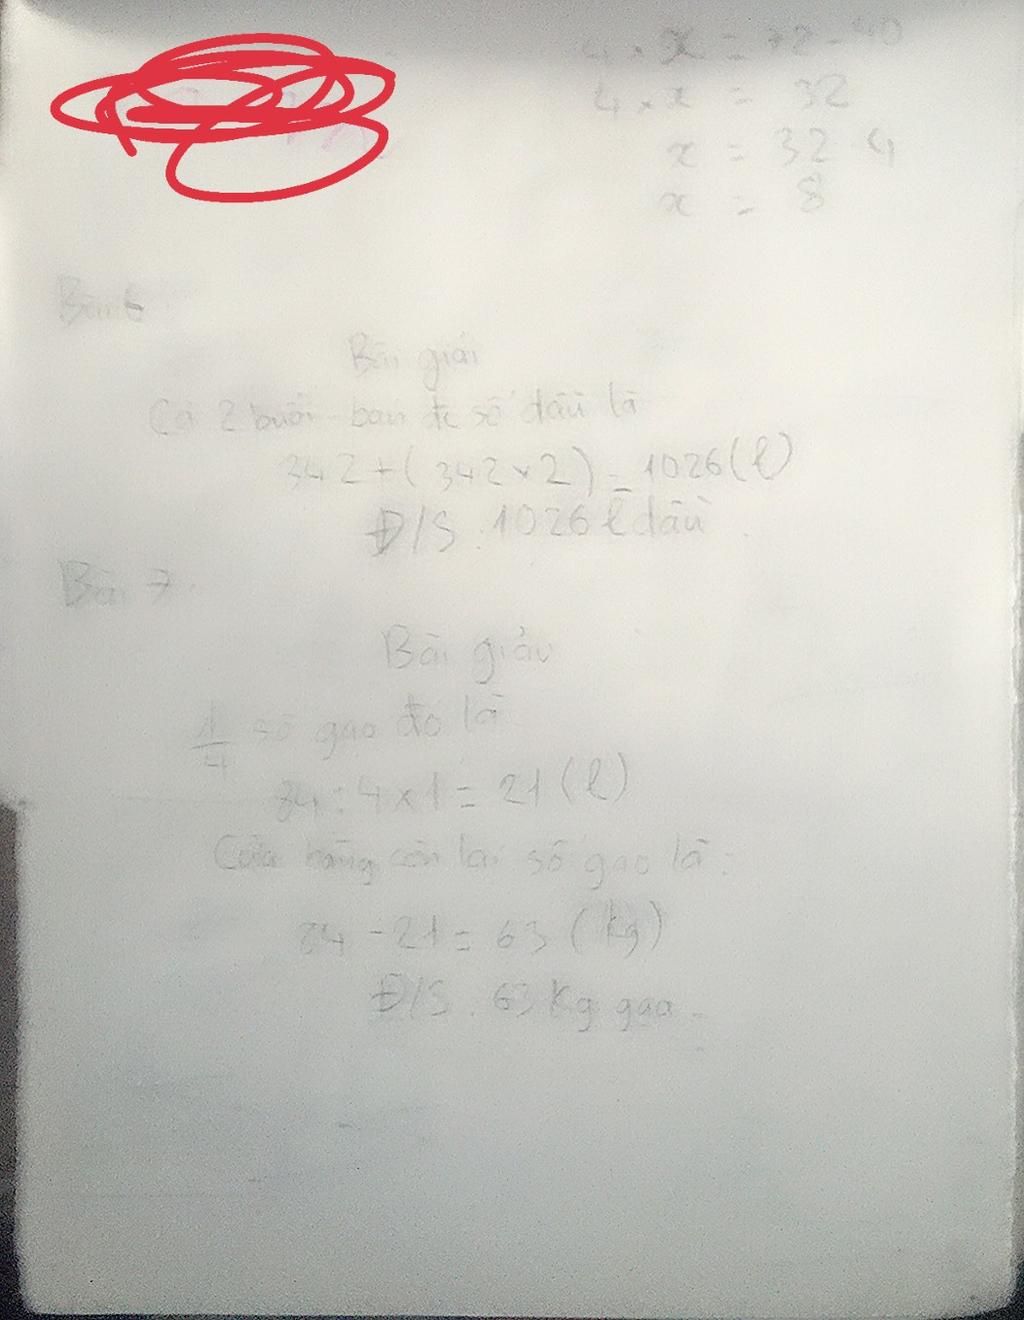 4 × x = 72 - 40
4 × x = 32
x = 32 4
x = 8
Bài 6
Bài giải
Cả 2 buổi bán đc số dầu là
342 + ( 342 × 2 ) = 1026 (l)
Đ/S : 1026 l dầu
Bài 7
Bài giải
1/4 số gạo đó là
84 : 4 × 1 = 21 (l)
Cửa hàng còn lại số gạo là :
84 - 21 = 63 ( kg )
Đ/S : 63 kg gạo